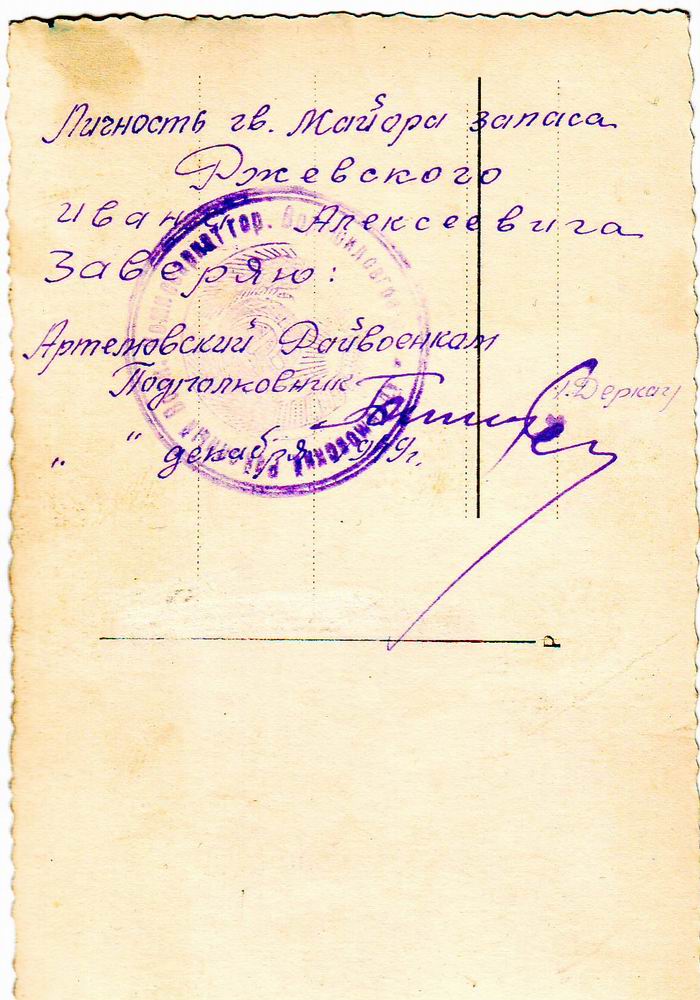 Личность гв. Майора запаса
Ржевского
Ивана Алексеевича
Заверяю:
Артемовский Райвоенком
Подполковник
Деркач
" " декабря 1949г.
Р